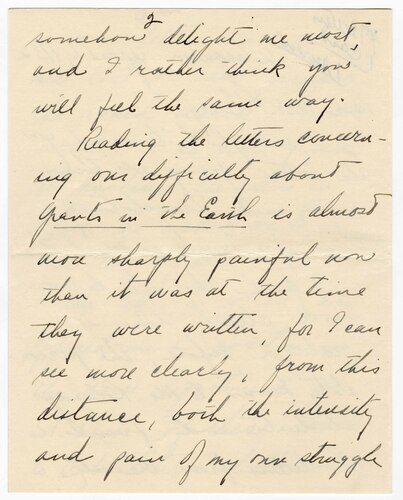 2
somehow delight me most
and I rather think you'
will feel the same way.
Reading the letters concern-
ing our difficulty about
Giants in the Earth is almost
more sharply painful now
than it was at the time
they were written, for I can
see more clearly, from this
distance, both the intensity
and pain of my own struggle